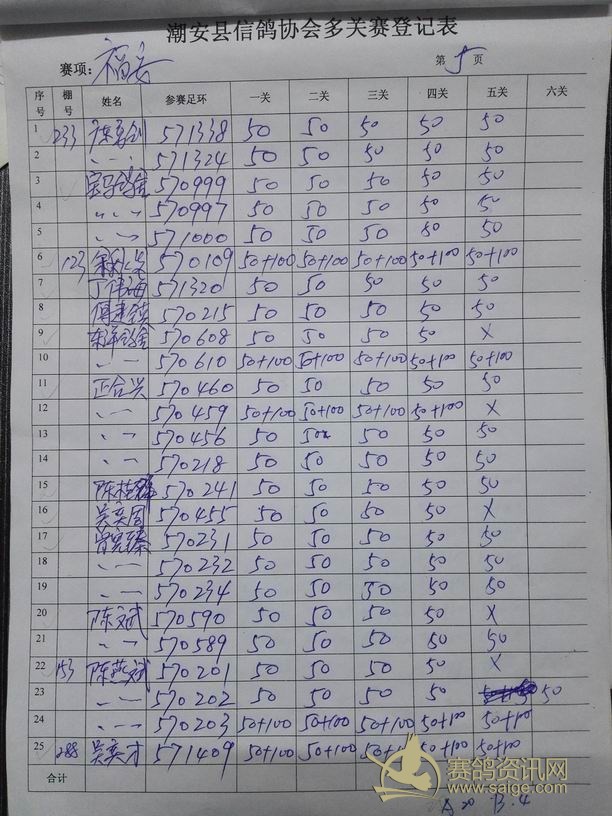 潮安县信鸽协会多关赛登记表
赛项: 福安 第 5 页
序号 棚号 姓名 参赛足环 一关 二关 三关 四关 五关 六关
1 233 571338 50 50 50 50 50
2 〃 571324 50 50 50 50 50
3 570999 50 50 50 50 50
4 〃 570997 50 50 50 50 50
5 〃 571000 50 50 50 80 50
6 123 570109 50+100 50+100 50+100 50+100 50+100
7 丁伟海 571320 50 50 50 50 50
8 570215 50 50 50 50 50
9 570608 50 50 50 50 X
10 〃 570610 50+100 50+100 50+100 50+100 50+100
11 正合兴 570460 50 50 50 50 50
12 〃 570459 50+100 50+100 50+100 50+100 X
13 〃 570456 50 50 50 50 50
14 〃 570218 50 50 50 50 50
15 570241 50 50 50 50 50
16 吴奕周 570455 50 50 50 50 X
17 570231 50 50 50 50 50
18 〃 570232 50 50 50 50 50
19 〃 570234 50 50 50 50 50
20 陈文斌 570590 50 50 50 50 X
21 〃 570589 50 50 50 80 50
22 153 陈燕斌 570201 50 50 50 50 X
23 〃 570202 50 50 50 50 50
24 〃 570203 50+100 50+100 50+100 50+100 50+100
25 288 吴奕才 571409 50+100 50+100 50+100 50+100 50+100
合计
赛鸽资讯网
www.saige.com